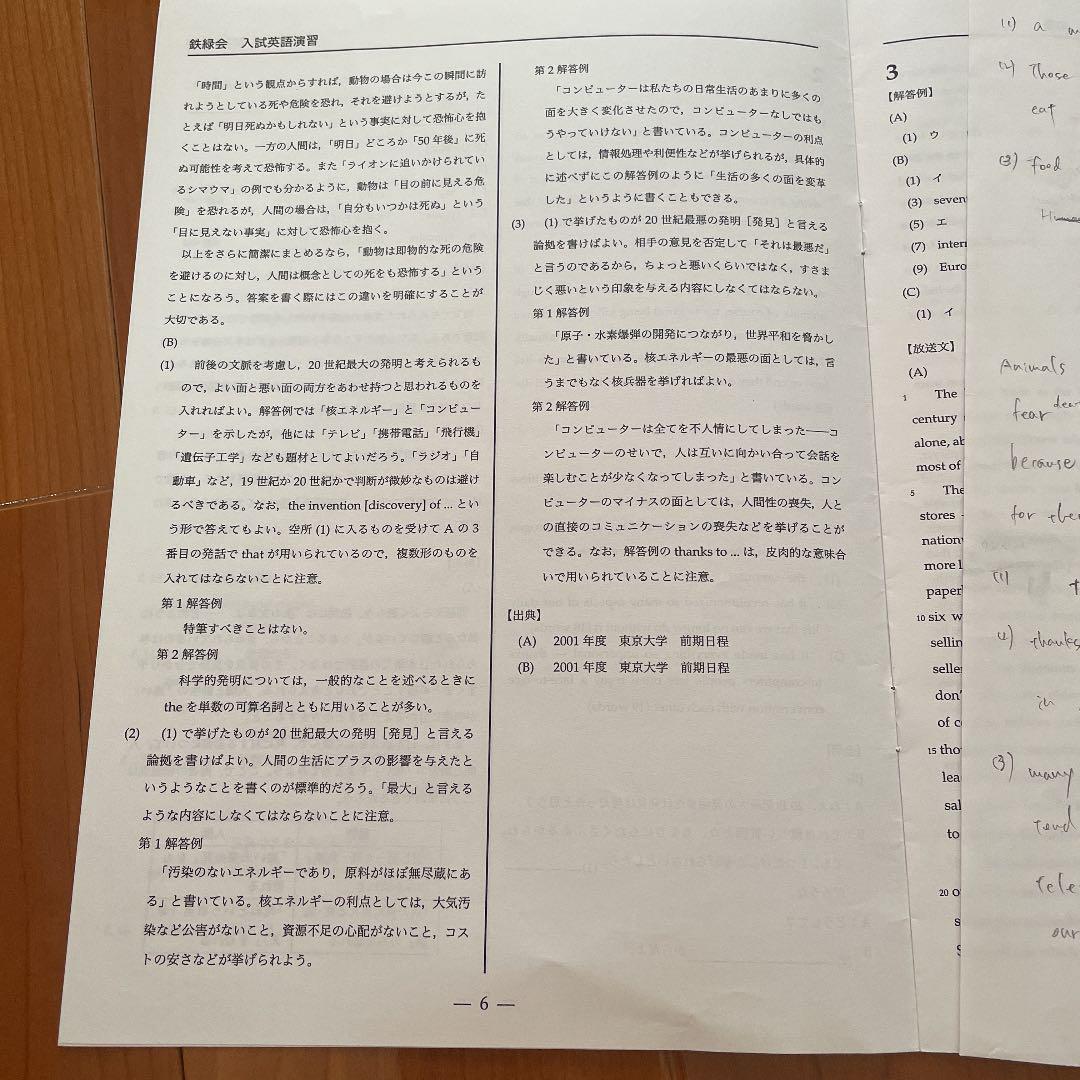 鉄緑会 入試英語演習
「時間」という観点からすれば，動物の場合は今この瞬間に訪
れようとしている死や危険を恐れ，それを避けようとするが，た
とえば「明日死ぬかもしれない」という事実に対して恐怖心を抱
くことはない。一方の人間は，「明日」どころか「50年後」に死
ぬ可能性を考えて恐怖する。また「ライオンに追いかけられてい
るシマウマ」の例でも分かるように，動物は「目の前に見える危
険」を恐れるが，人間の場合は，「自分もいつかは死ぬ」という
「目に見えない事実」に対して恐怖心を抱く。
以上をさらに簡潔にまとめるなら，「動物は即物的な死の危険
を避けるのに対し，人間は概念としての死をも恐怖する」という
ことになろう。答案を書く際にはこの違いを明確にすることが
大切である。
(B)
(1) 前後の文脈を考慮し，20世紀最大の発明と考えられるも
ので，よい面と悪い面の両方をあわせ持つと思われるものを
入れればよい。解答例では「核エネルギー」と「コンピュー
ター」を示したが，他には「テレビ」「携帯電話」「飛行機」
「遺伝子工学」なども題材としてよいだろう。「ラジオ」「自
動車」など，19世紀か20世紀かで判断が微妙なものは避け
るべきである。なお，the invention [discovery] of ... とい
う形で答えてもよい。空所(1)に入るものを受けてAの3
番目の発話でthatが用いられているので，複数形のものを
入れてはならないことに注意。
第1解答例
特筆すべきことはない。
第2解答例
科学的発明については，一般的なことを述べるときに
theを単数の可算名詞とともに用いることが多い。
(2) (1)で挙げたものが20世紀最大の発明［発見］と言える
論拠を書けばよい。人間の生活にプラスの影響を与えたと
いうようなことを書くのが標準的だろう。「最大」と言える
ような内容にしなくてはならないことに注意。
第1解答例
「汚染のないエネルギーであり，原料がほぼ無尽蔵にあ
る」と書いている。核エネルギーの利点としては，大気汚
染など公害がないこと，資源不足の心配がないこと，コス
トの安さなどが挙げられよう。
第2解答例
「コンピューターは私たちの日常生活のあまりに多くの
面を大きく変化させたので，コンピューターなしではも
うやっていけない」と書いている。コンピューターの利点
としては，情報処理や利便性などが挙げられるが，具体的
に述べずにこの解答例のように「生活の多くの面を変革
した」というように書くこともできる。
(3) (1)で挙げたものが20世紀最悪の発明［発見］と言える
論拠を書けばよい。相手の意見を否定して「それは最悪だ」
と言うのであるから，ちょっと悪いくらいではなく，すさま
じく悪いという印象を与える内容にしなくてはならない。
第1解答例
「原子・水素爆弾の開発につながり，世界平和を脅かし
た」と書いている。核エネルギーの最悪の面としては，言
うまでもなく核兵器を挙げればよい。
第2解答例
「コンピューターは全てを不人情にしてしまった――コ
ンピューターのせいで，人は互いに向かい合って会話を
楽しむことが少なくなってしまった」と書いている。コン
ピューターのマイナスの面としては，人間性の喪失，人と
の直接のコミュニケーションの喪失などを挙げることが
できる。なお，解答例のthanks to ... は，皮肉的な意味合
いで用いられていることに注意。
【出典】
(A) 2001年度 東京大学 前期日程
(B) 2001年度 東京大学 前期日程
— 6 —
3
【解答例】
(A)
(1) ウ
(B)
(1) イ
(3) seven
(5) エ
(7) inter
(9) Euro
(C)
(1) イ
【放送文】
(A)
1 The
century
alone, ab
most of
5 The
stores
nation
more l
paper
10 six w
sellin
selle
don'
of c
15 tho
lea
sal
to
20 o
s
S
(1) a
(2) Those
eat
(3) food
Animals
fear dea
because
for the
(1)
(2) thanks
in
(3) many
tend
tele
our